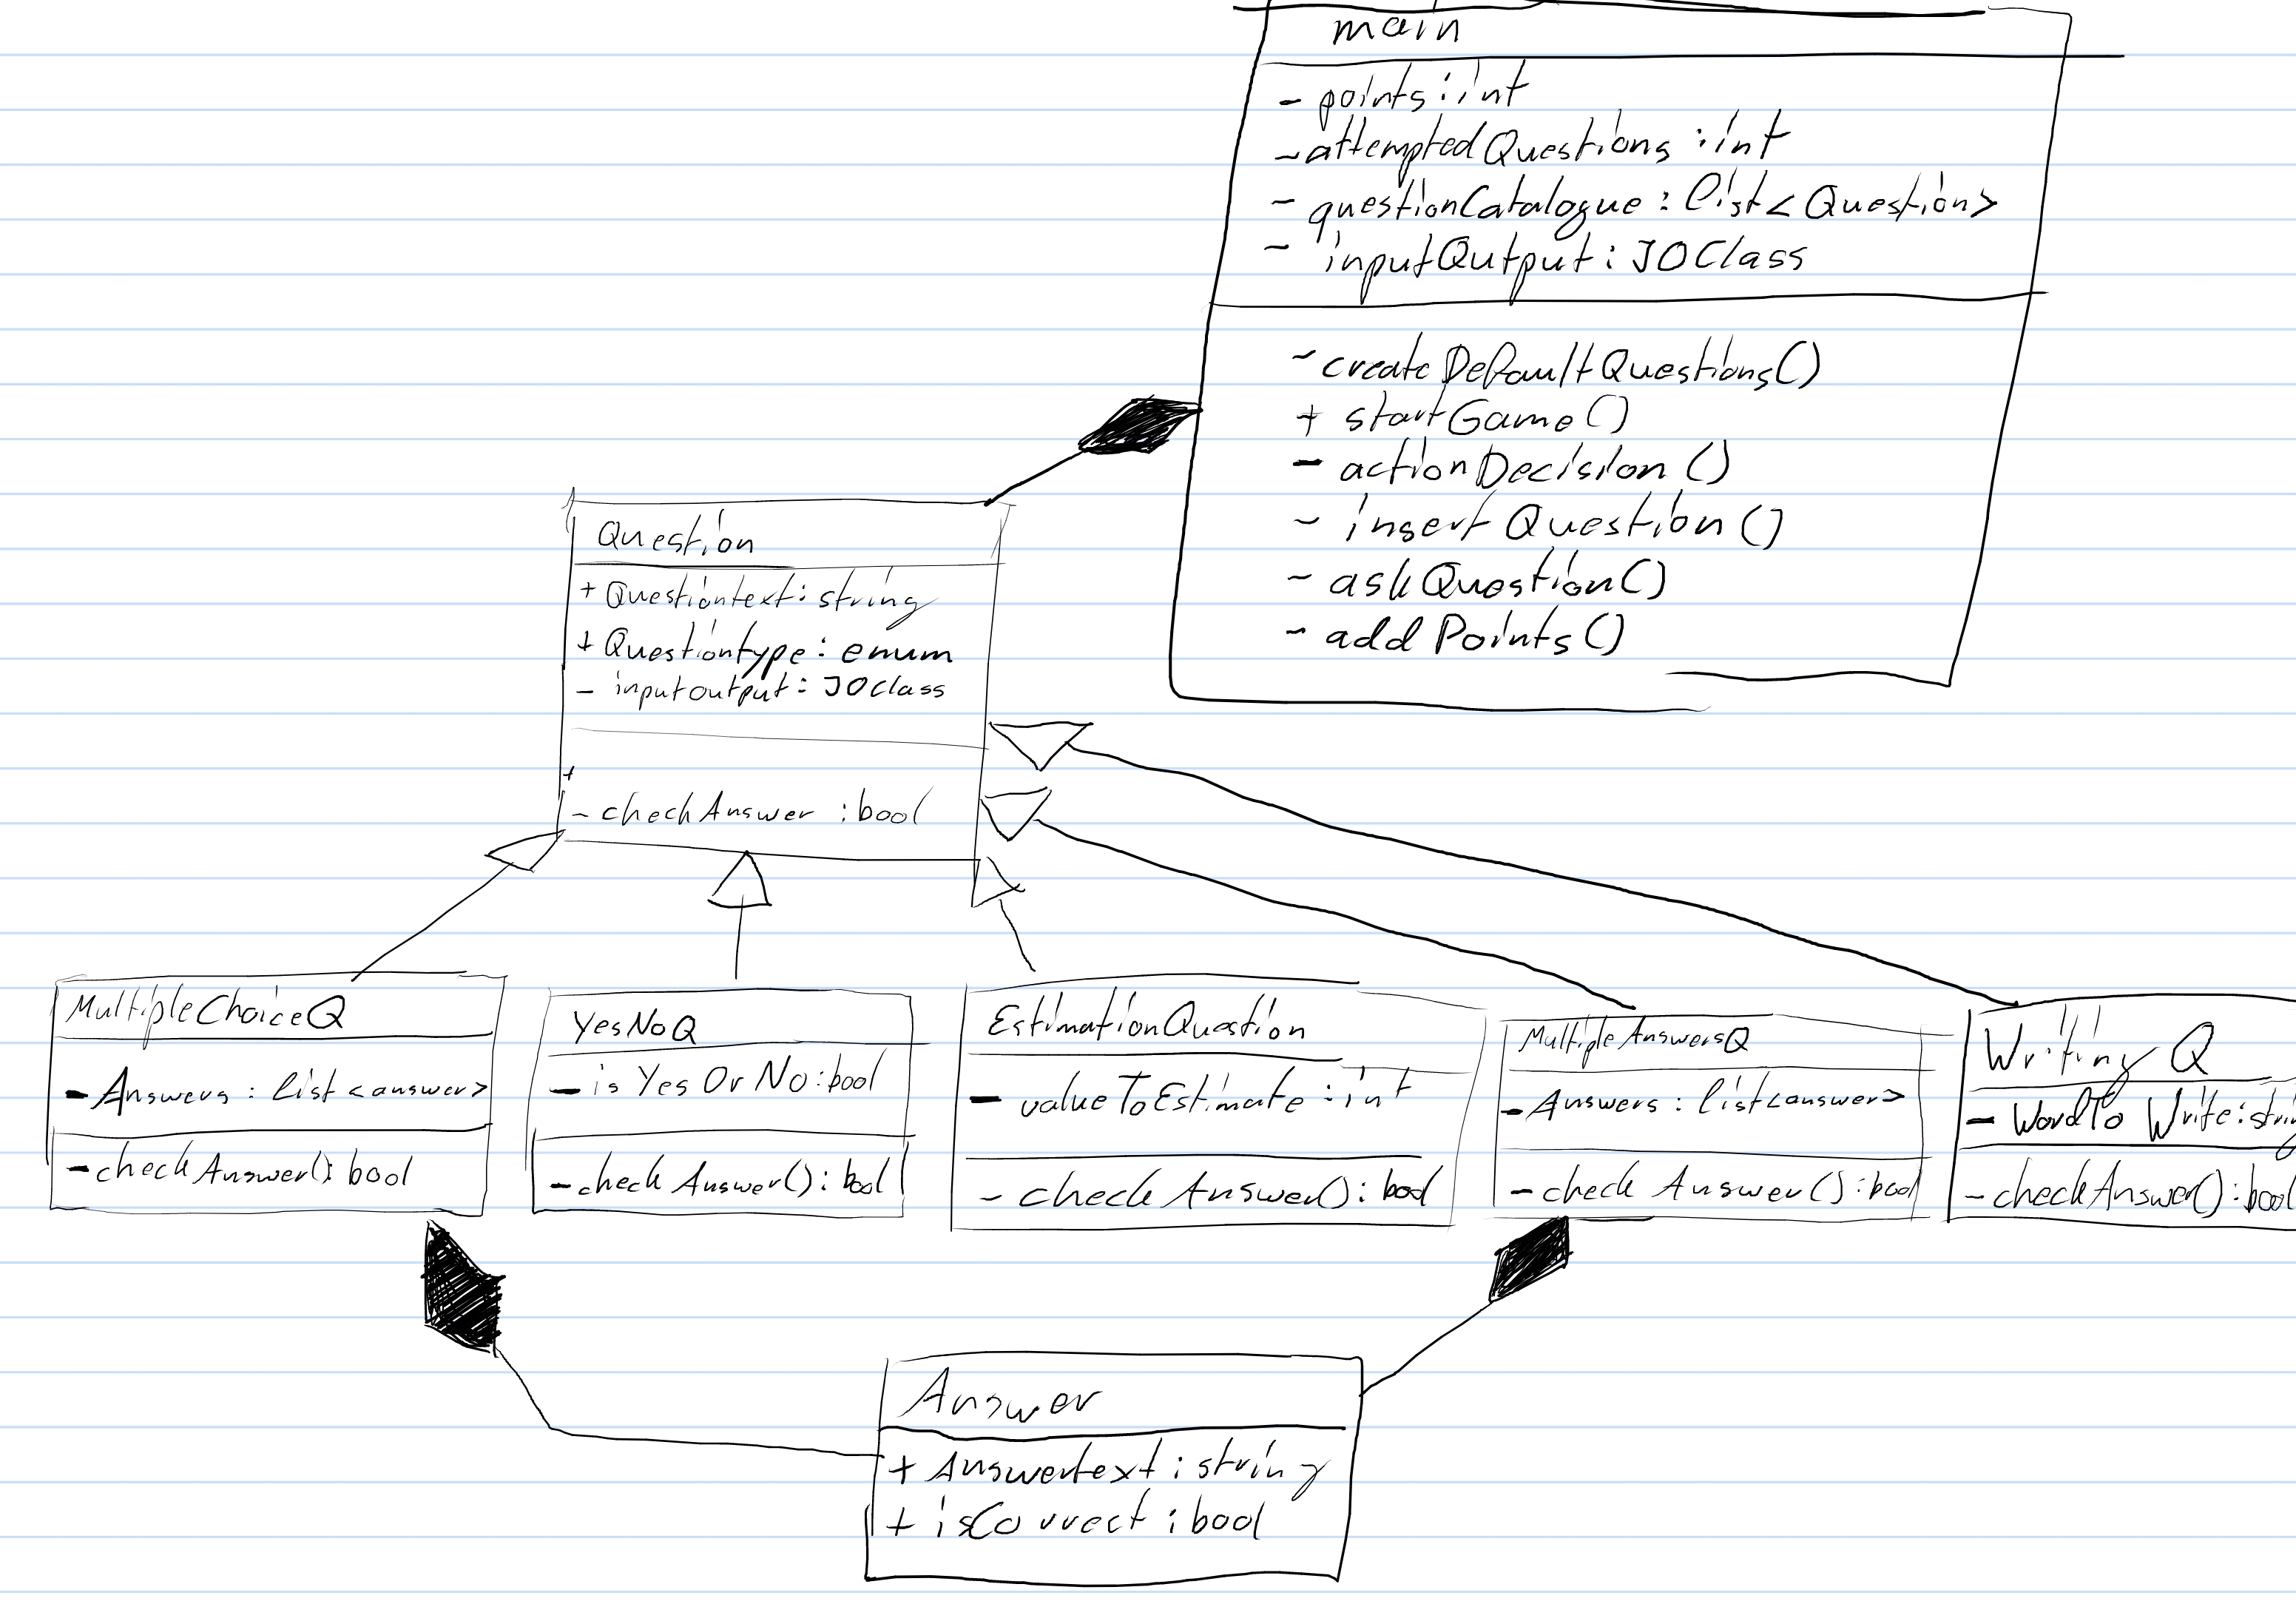 main
- points : int
- attemptedQuestions : int
- questionCatalogue : list<Question>
- inputOutput : IOClass
- createDefaultQuestions()
+ startGame()
- actionDecision()
- insertQuestion()
- askQuestion()
- addPoints()
Question
+ Questiontext : string
+ Questiontype : enum
- inputoutput : IOClass
+
- checkAnswer : bool
MultipleChoiceQ
- Answers : list<answer>
- checkAnswer() : bool
YesNoQ
- isYesOrNo : bool
- checkAnswer() : bool
EstimationQuestion
- valueToEstimate : int
- checkAnswer() : bool
MultipleAnswersQ
- Answers : list<answer>
- checkAnswer() : bool
WritingQ
- WordToWrite : strin
- checkAnswer() : bool
Answer
+ Answertext : string
+ isCorrect : bool